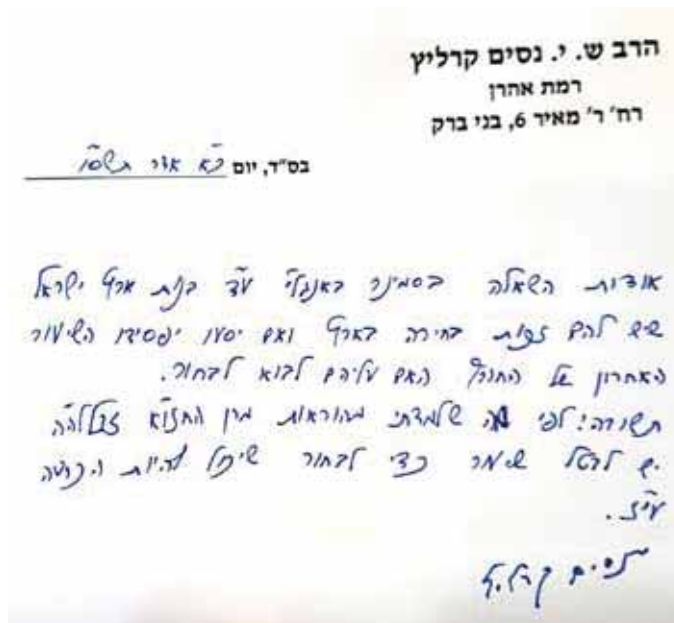 הרב ש. י. נסים קרליץ
רמת אהרן
רח' ר' מאיר 6, בני ברק
בס"ד, יום כ"א אדר תשס"ו
אודות השאלה בסמינר באנגלי' ע"ד בנות ארץ ישראל
שיש להם זכות בחירה בארץ ואם יסעו יפסידו השיעור
האחרון של החורף האם עליהם לבוא לבחור.
תשובה: לפי מה שלמדתי מהוראות מרן החזו"א זצללה"ה
יש לבטל שיעור כדי לבחור שיכול להיות הכרעה
עי"ז.
נסים קרליץ